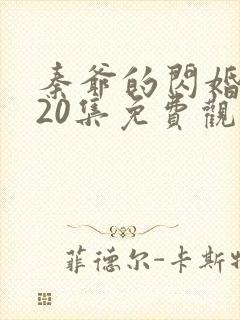 秦爷的閃婚
20集免費觀
菲德尔-卡斯特